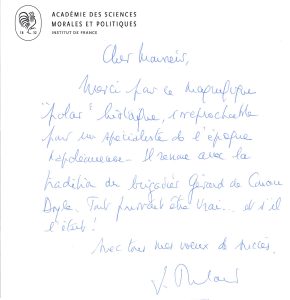 ACADÉMIE DES SCIENCES
MORALES ET POLITIQUES
INSTITUT DE FRANCE
18 32
Cher Monsieur,
Merci par ce magnifique
"polar" historique, irréprochable
pour un spécialiste de l'époque
napoléonienne. Il renoue avec la
tradition du brigadier Gérard de Conan
Doyle. Tout pourrait être vrai... et s'il
l'était !
Avec tous mes voeux de succès.
J.